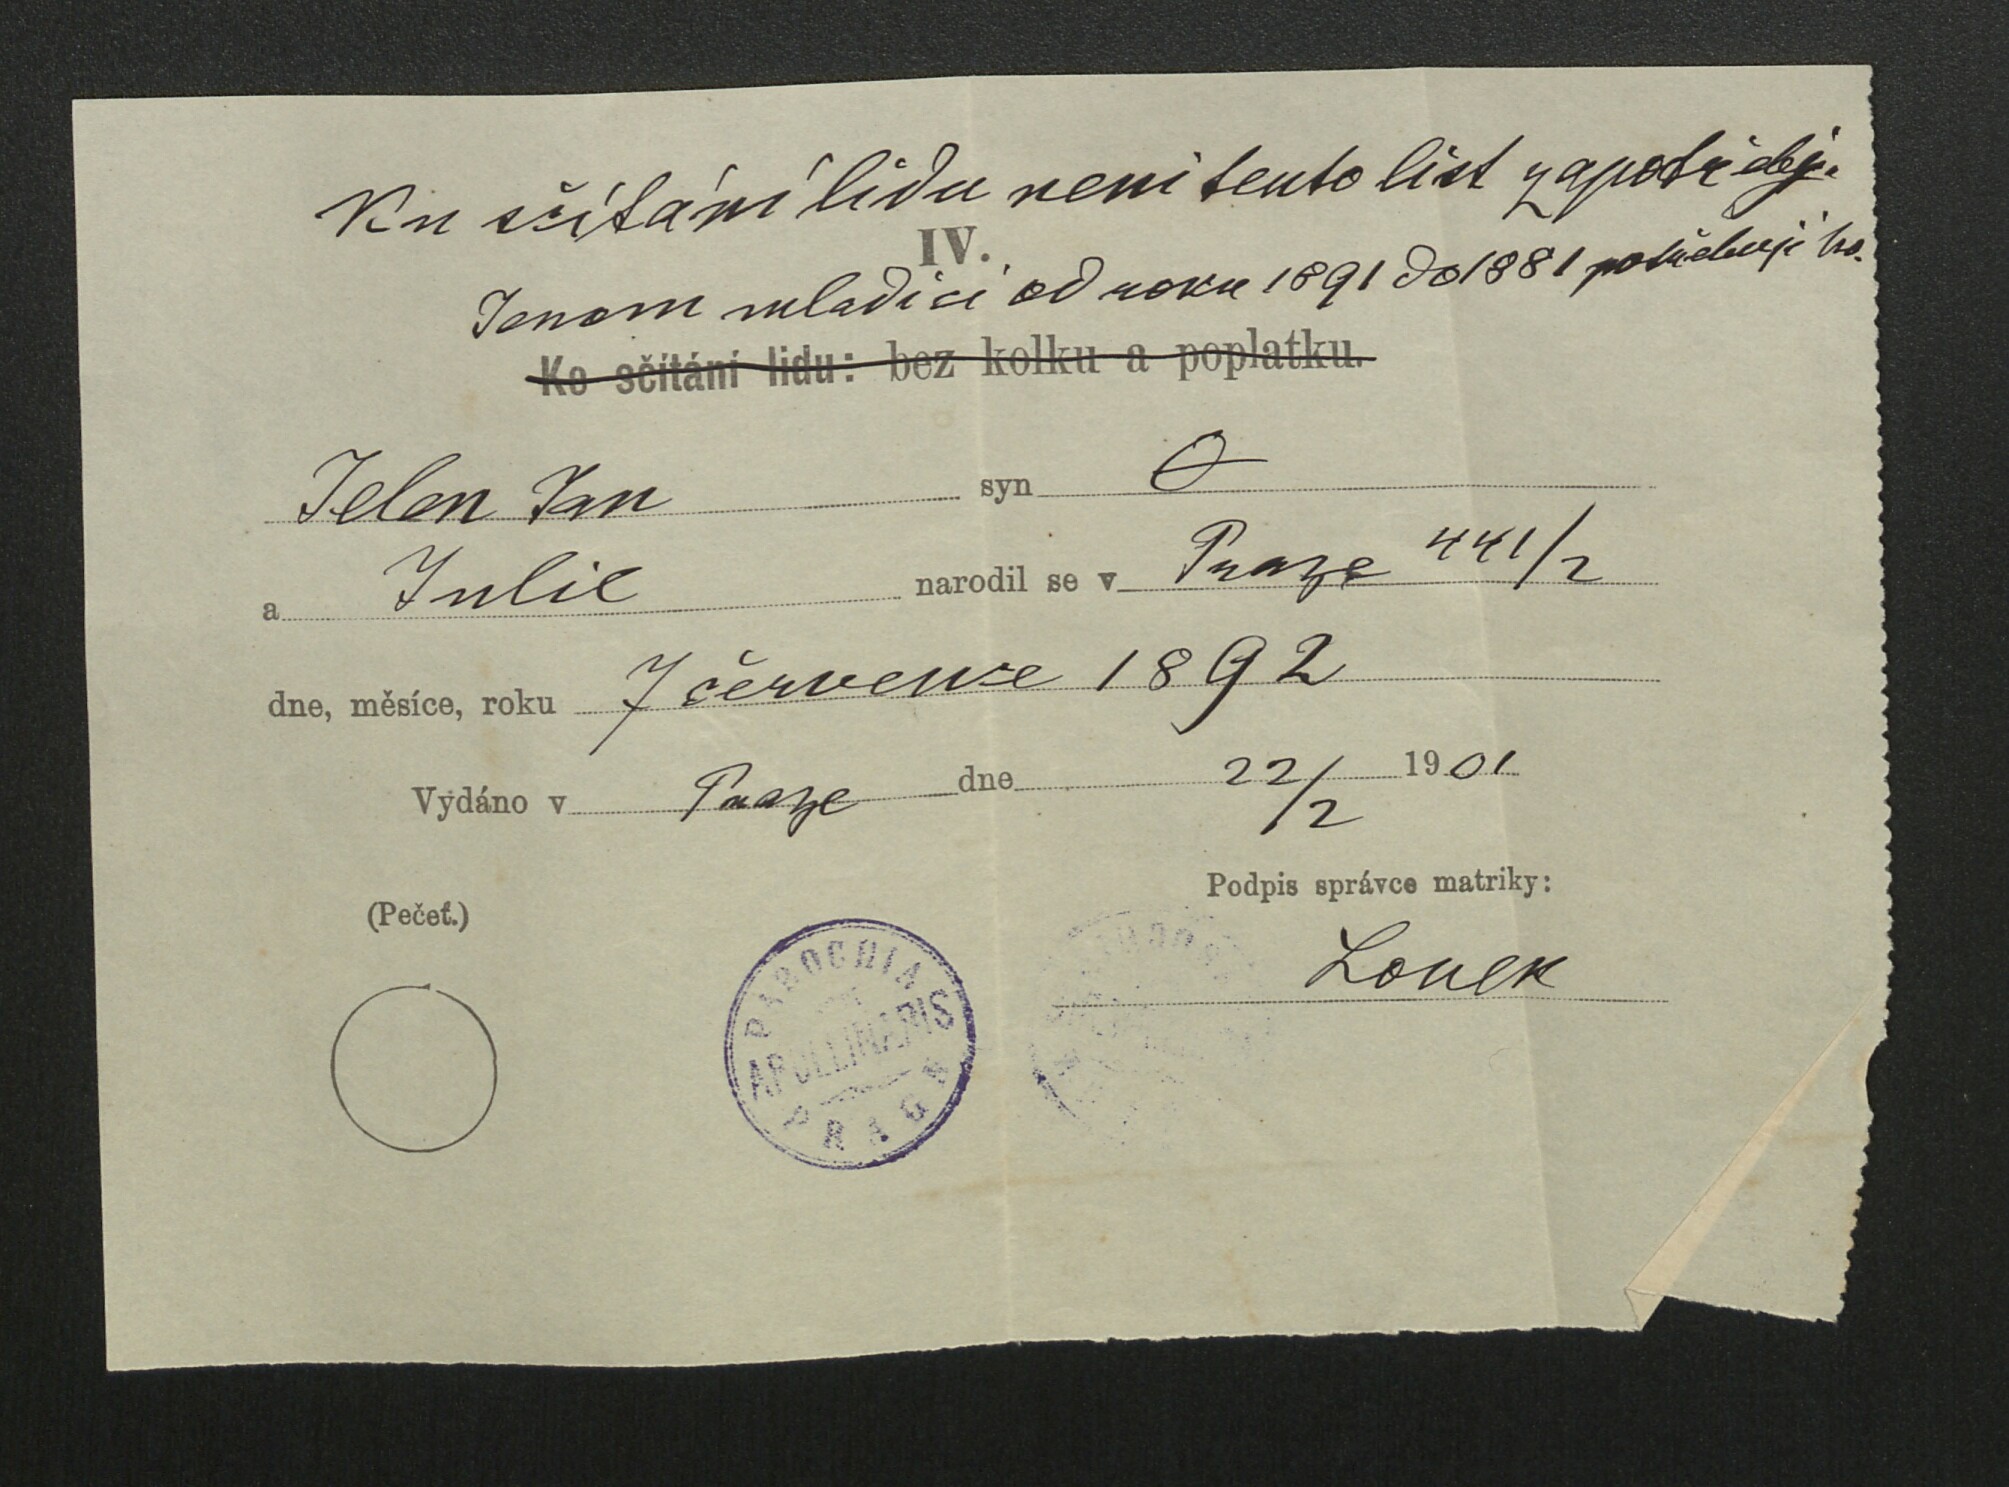 Ku sčítání lidu není tento list zapotřebí.
IV.
Jenom mladíci od roku 1891 do 1881 potřebují ho.
Ke sčítání lidu: bez kolku a poplatku.
Jelen Jan syn O
a Julie narodil se v Praze 441/2
dne, měsíce, roku 7 července 1892
Vydáno v Praze dne 22/2 1901
Podpis správce matriky:
(Pečeť.)
Lonek
PAROCHIA
APOLLINARIS
PRAGAE